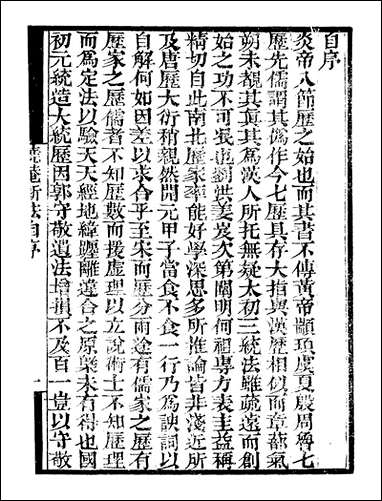 自序
炎帝八節歷之始也而其書不傳黃帝顓頊虞夏殷周魯七
歷先儒謂其偽作今七歷具存大指與漢歷相似而章蔀氣
朔未覩其真其為漢人所托無疑太初三統法雖疏遠而創
始之功不可泯也劉洪姜岌次第闡明何祖專方表圭益稱
精切自此南北歷家率能好學深思多所推論皆非淺近所
及唐歷大衍稍親然開元甲子當食不食一行乃為諛詞以
自解何如因差以求合乎至宋而歷分兩途有儒家之歷有
歷家之歷儒者不知歷數而援虛理以立說術士不知歷理
而為定法以驗天天經地緯躔離違合之原槩未有得也國
初元統造大統歷因郭守敬遺法增損不及百一豈以守敬
曉菴新法自序
一